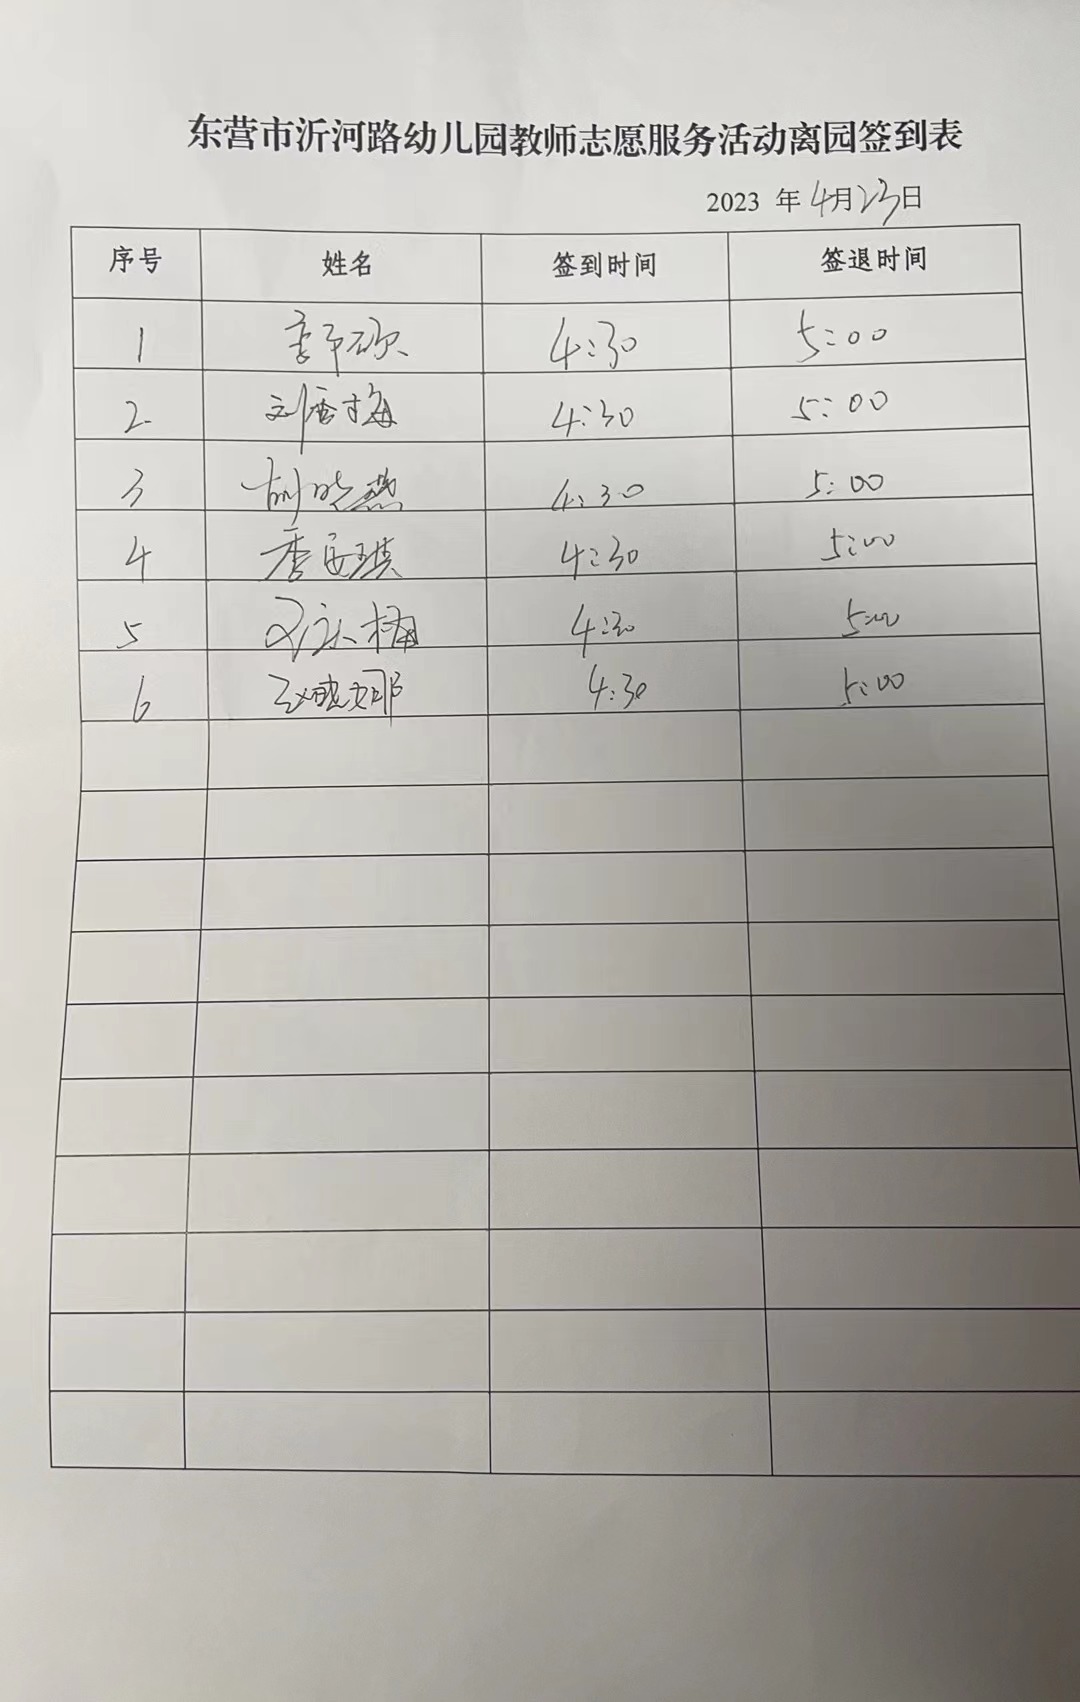 东营市沂河路幼儿园教师志愿服务活动离园签到表
2023 年 4月23日
序号 姓名 签到时间 签退时间
1 4:30 5:00
2 刘香梅 4:30 5:00
3 胡晓燕 4:30 5:00
4 季安琪 4:30 5:00
5 4:30 5:00
6 赵晓娜 4:30 5:00